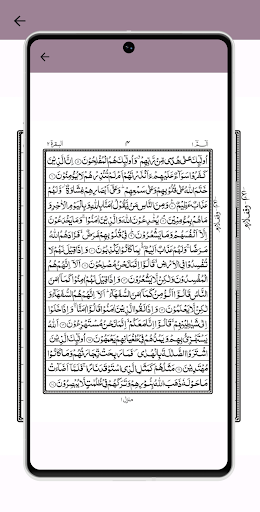 البقرة ٢
٣
الٓمّٓ ١
اُولٰٓئِكَ عَلٰى هُدًى مِّنْ رَّبِّهِمْ وَاُولٰٓئِكَ هُمُ الْمُفْلِحُوْنَ اِنَّ الَّذِيْنَ
كَفَرُوْا سَوَآءٌ عَلَيْهِمْ ءَاَنْذَرْتَهُمْ اَمْ لَمْ تُنْذِرْهُمْ لَا يُؤْمِنُوْنَ
خَتَمَ اللّٰهُ عَلٰى قُلُوْبِهِمْ وَعَلٰى سَمْعِهِمْ وَعَلٰٓى اَبْصَارِهِمْ غِشَاوَةٌ وَّلَهُمْ
عَذَابٌ عَظِيْمٌ وَمِنَ النَّاسِ مَنْ يَّقُوْلُ اٰمَنَّا بِاللّٰهِ وَبِالْيَوْمِ الْاٰخِرِ وَ
مَا هُمْ بِمُؤْمِنِيْنَ يُخٰدِعُوْنَ اللّٰهَ وَالَّذِيْنَ اٰمَنُوْا وَمَا يَخْدَعُوْنَ
اِلَّآ اَنْفُسَهُمْ وَمَا يَشْعُرُوْنَ فِيْ قُلُوْبِهِمْ مَّرَضٌ فَزَادَهُمُ اللّٰهُ
مَرَضًا وَلَهُمْ عَذَابٌ اَلِيْمٌ بِمَا كَانُوْا يَكْذِبُوْنَ وَاِذَا قِيْلَ لَهُمْ لَا
تُفْسِدُوْا فِي الْاَرْضِ قَالُوْٓا اِنَّمَا نَحْنُ مُصْلِحُوْنَ اَلَآ اِنَّهُمْ هُمُ
الْمُفْسِدُوْنَ وَلٰكِنْ لَّا يَشْعُرُوْنَ وَاِذَا قِيْلَ لَهُمْ اٰمِنُوْا كَمَآ اٰمَنَ
النَّاسُ قَالُوْٓا اَنُؤْمِنُ كَمَآ اٰمَنَ السُّفَهَآءُ اَلَآ اِنَّهُمْ هُمُ السُّفَهَآءُ وَ
لٰكِنْ لَّا يَعْلَمُوْنَ وَاِذَا لَقُوا الَّذِيْنَ اٰمَنُوْا قَالُوْٓا اٰمَنَّا وَاِذَا خَلَوْا
اِلٰى شَيٰطِيْنِهِمْ قَالُوْٓا اِنَّا مَعَكُمْ اِنَّمَا نَحْنُ مُسْتَهْزِءُوْنَ اَللّٰهُ
يَسْتَهْزِئُ بِهِمْ وَيَمُدُّهُمْ فِيْ طُغْيَانِهِمْ يَعْمَهُوْنَ اُولٰٓئِكَ الَّذِيْنَ
اشْتَرَوُا الضَّلٰلَةَ بِالْهُدٰى فَمَا رَبِحَتْ تِّجَارَتُهُمْ وَمَا كَانُوْا
مُهْتَدِيْنَ مَثَلُهُمْ كَمَثَلِ الَّذِى اسْتَوْقَدَ نَارًا فَلَمَّآ اَضَآءَتْ
مَا حَوْلَهٗ ذَهَبَ اللّٰهُ بِنُوْرِهِمْ وَتَرَكَهُمْ فِيْ ظُلُمٰتٍ لَّا يُبْصِرُوْنَ
منزل ١